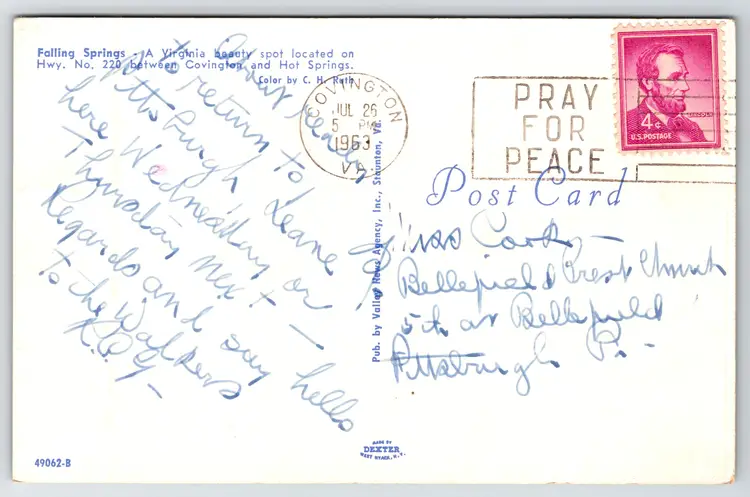 Falling Springs - A Virginia beauty spot located on
Hwy. No. 220 between Covington and Hot Springs.
Color by C. H. Ruth
About ready
to return to
Pittsburgh Leave
here Wednesday or
Thursday next —
Regards and say hello
to the Walkers
COVINGTON
JUL 26
5 PM
1963
VA.
PRAY
FOR
PEACE
LINCOLN
4¢
U.S. POSTAGE
Post Card
Pub. by Valley News Agency, Inc., Staunton, Va.
Miss
Bellefield Church
5th at Bellefield
Pittsburgh Pa.
49062-B
MADE BY
DEXTER
WEST NYACK, N.Y.